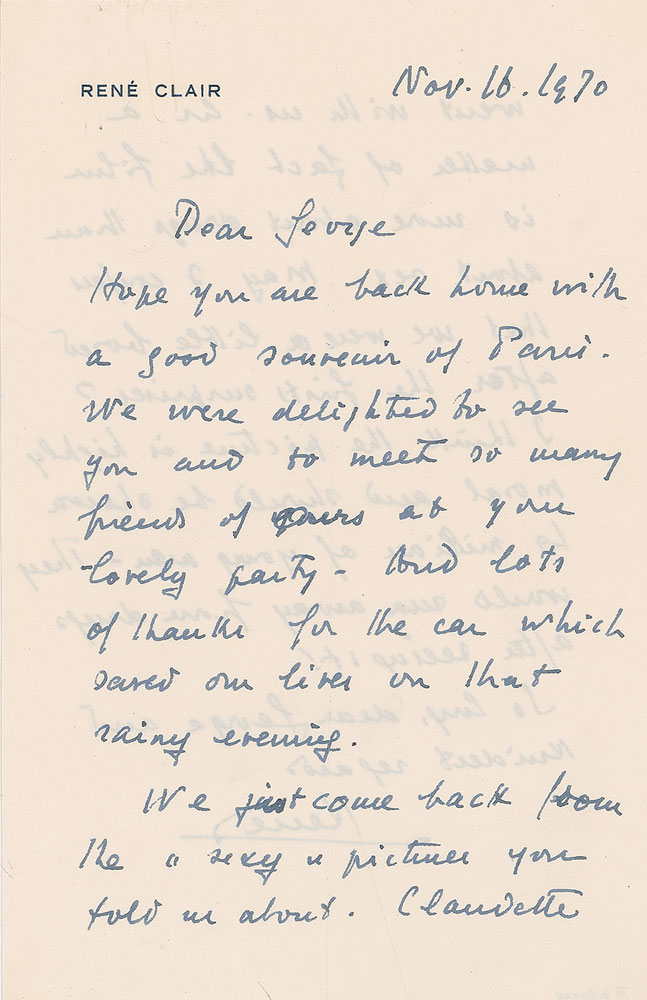 RENÉ CLAIR
Nov. 16. 1970
Dear George
Hope you are back home with
a good souvenir of Paris.
We were delighted to see
you and to meet so many
friends of yours at you
lovely party - And lots
of thanks for the car which
saved our lives on that
rainy evening.
We just come back from
the "sexy" picture you
told us about. Claudette